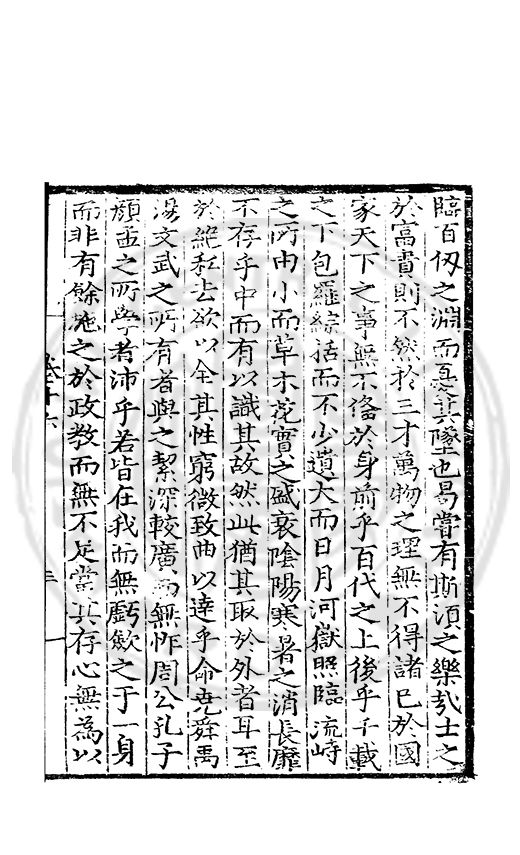 臨百仭之淵而憂其墜也曷嘗有斯須之樂哉士之
於富貴則不然於三才萬物之理無不得諸已於國
家天下之事無不備於身前乎百代之上後乎千載
之下包羅綜括而不少遺大而日月河嶽照臨流峙
之所由小而草木花實之盛衰陰陽寒暑之消長靡
不存乎中而有以識其故然此猶其取於外者耳至
於絶私去欲以全其性窮微致曲以達乎命堯舜禹
湯文武之所有者與之絜深較廣而無怍周公孔子
顔孟之所學者沛乎若皆在我而無虧歛之于一身
而非有餘施之於政教而無不足當其存心無為以
卷十六
三